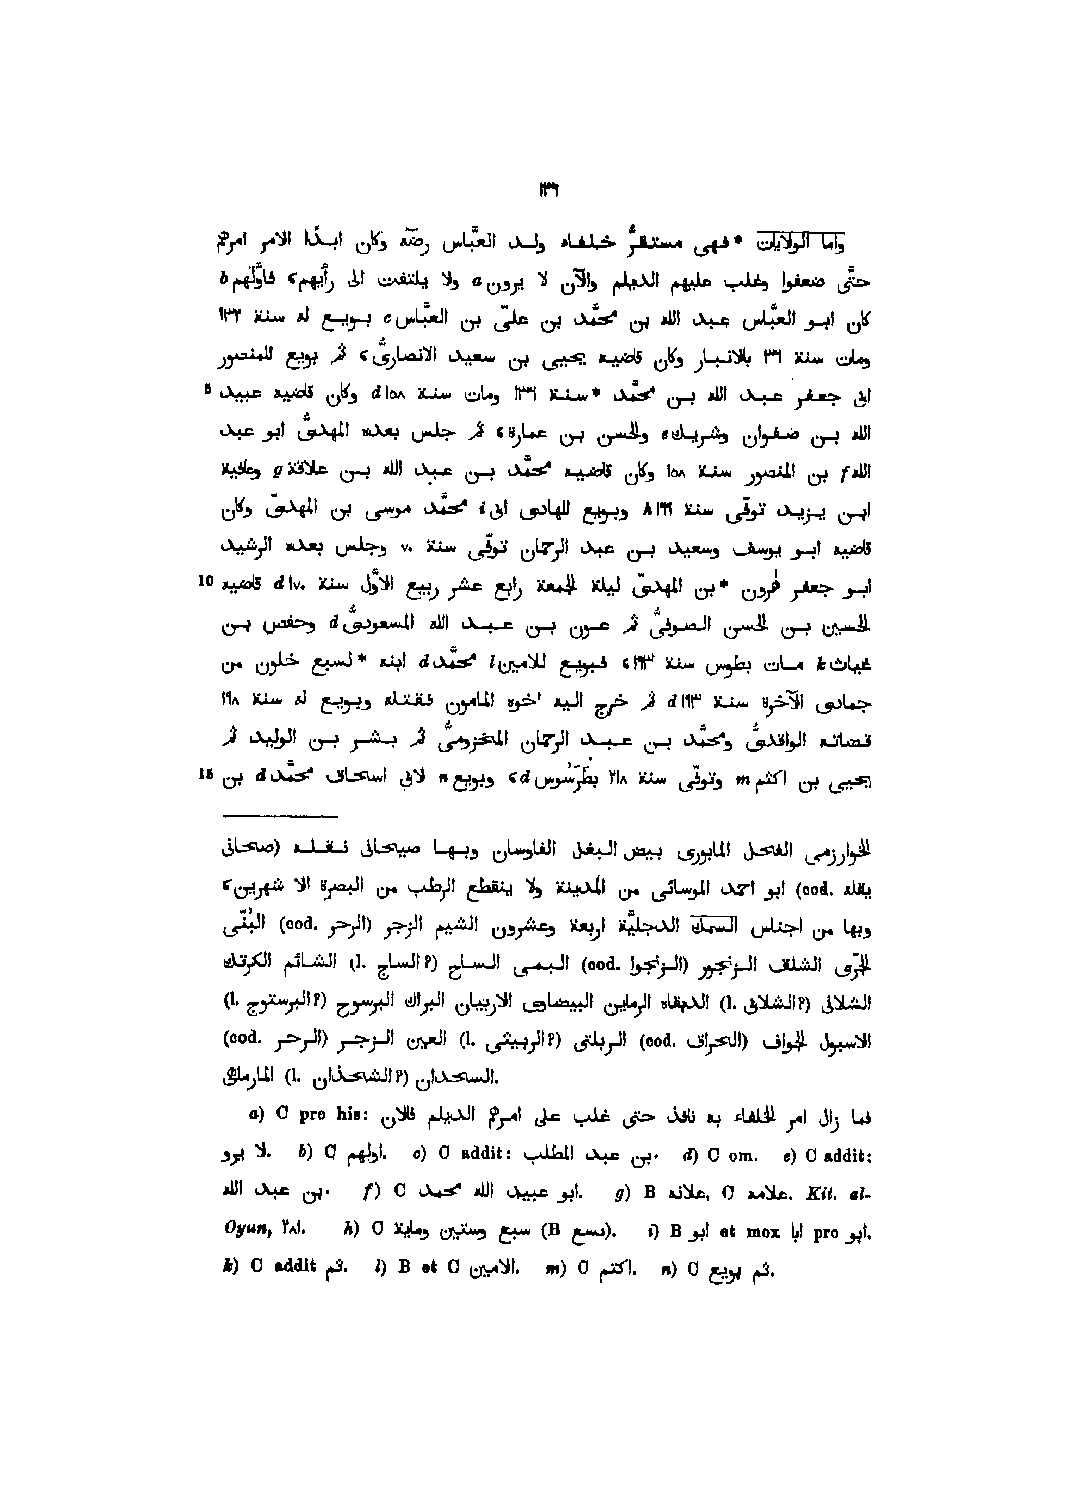 ١٣١
واما الولايات * فهى مستقرُّ خلفاء ولد العبّاس رضّه وكان ابدًا الامر امرهم
حتّى ضعفوا وغلب عليهم الديلم والآن لا يرون a ولا يلتفت الى رأيهم، فاوّلهم b
كان ابو العبّاس عبد الله بن محمّد بن علىّ بن العبّاس c بويع له سنة ١٣٢
ومات سنة ٣٦ بالانبار وكان قاضيه يحيى بن سعيد الانصارىُّ، ثم بويع للمنصور
5 ابى جعفر عبد الله بن محمّد * سنة ١٣٦ ومات سنة ١٥٨ d وكان قاضيه عبيد
الله بن صفوان وشريك e والحسن بن عمارة، ثم جلس بعده المهدىُّ ابو عبد
الله f بن المنصور سنة ١٥٨ وكان قاضيه محمّد بن عبد الله بن علاقة g وعافية
ابن يزيد توفّى سنة ١٦٩ h وبويع للهادى ابى i محمّد موسى بن المهدىّ وكان
قاضيه ابو يوسف وسعيد بن عبد الرحمان توفّى سنة ٧٠ وجلس بعده الرشيد
10 ابو جعفر هٰرون * بن المهدىّ ليلة الجمعة رابع عشر ربيع الاوّل سنة ١٧٠ d قاضيه
الحسين بن الحسن الصوفىُّ ثم عون بن عبد الله المسعودىُّ d وحفص بن
غياث k مات بطوس سنة ١٩٣، فبويع للامين l محمّد d ابنه * لسبع خلون من
جمادى الآخرة سنة ١٩٣ d ثم خرج اليه اخوه المامون فقتله وبويع له سنة ١٩٨
قضاته الواقدىُّ ومحمّد بن عبد الرحمان المخزومىُّ ثم بشر بن الوليد ثم
15 يحيى بن اكثم m وتوفّى سنة ٢١٨ بطَرَسُوس d، وبويع n لابى اسحاق محمّد d بن
الخوارزمى الفحل المابورى بيض البغل الفاوسان وبها صيحانى نقله (صحانى
يقله cod.) ابو احمد الموسائى من المدينة ولا ينقطع الرطب من البصرة الا شهرين،
وبها من اجناس السمك الدجليّة اربعة وعشرون الشيم الزجر (الرحر cod.) البُنّى
الجرّى الشلق الزنجور (الزنجوا cod.) البمى الساح (l. الساج؟) الشائم الكرتك
الشلانى (l. الشلاق؟) الدبقاه الرماين البيضاوى الاربيان البراك البرسوح (l. البرستوج؟)
الاسبول الجواف (الحراف cod.) الربلتى (l. الربيثى؟) العين الزجر (الرحر cod.)
السحدان (l. الشحذان؟) المارماهى.
a) C pro his: فما زال امر الخلفاء به نافذ حتى غلب على امرهم الديلم فالان
لا يرو. b) C اولهم. c) C addit: بن عبد المطلب. d) C om. e) C addit:
بن عبد الله. f) C ابو عبيد الله محمد. g) B علانه, C علامه. Kit. al-
Oyun, ٢٨١. h) C سبع وستين وماية (B تسع). i) B ابو et mox ابا pro ابو.
k) C addit ثم. l) B et C الامين. m) C اكتم. n) C ثم بويع.